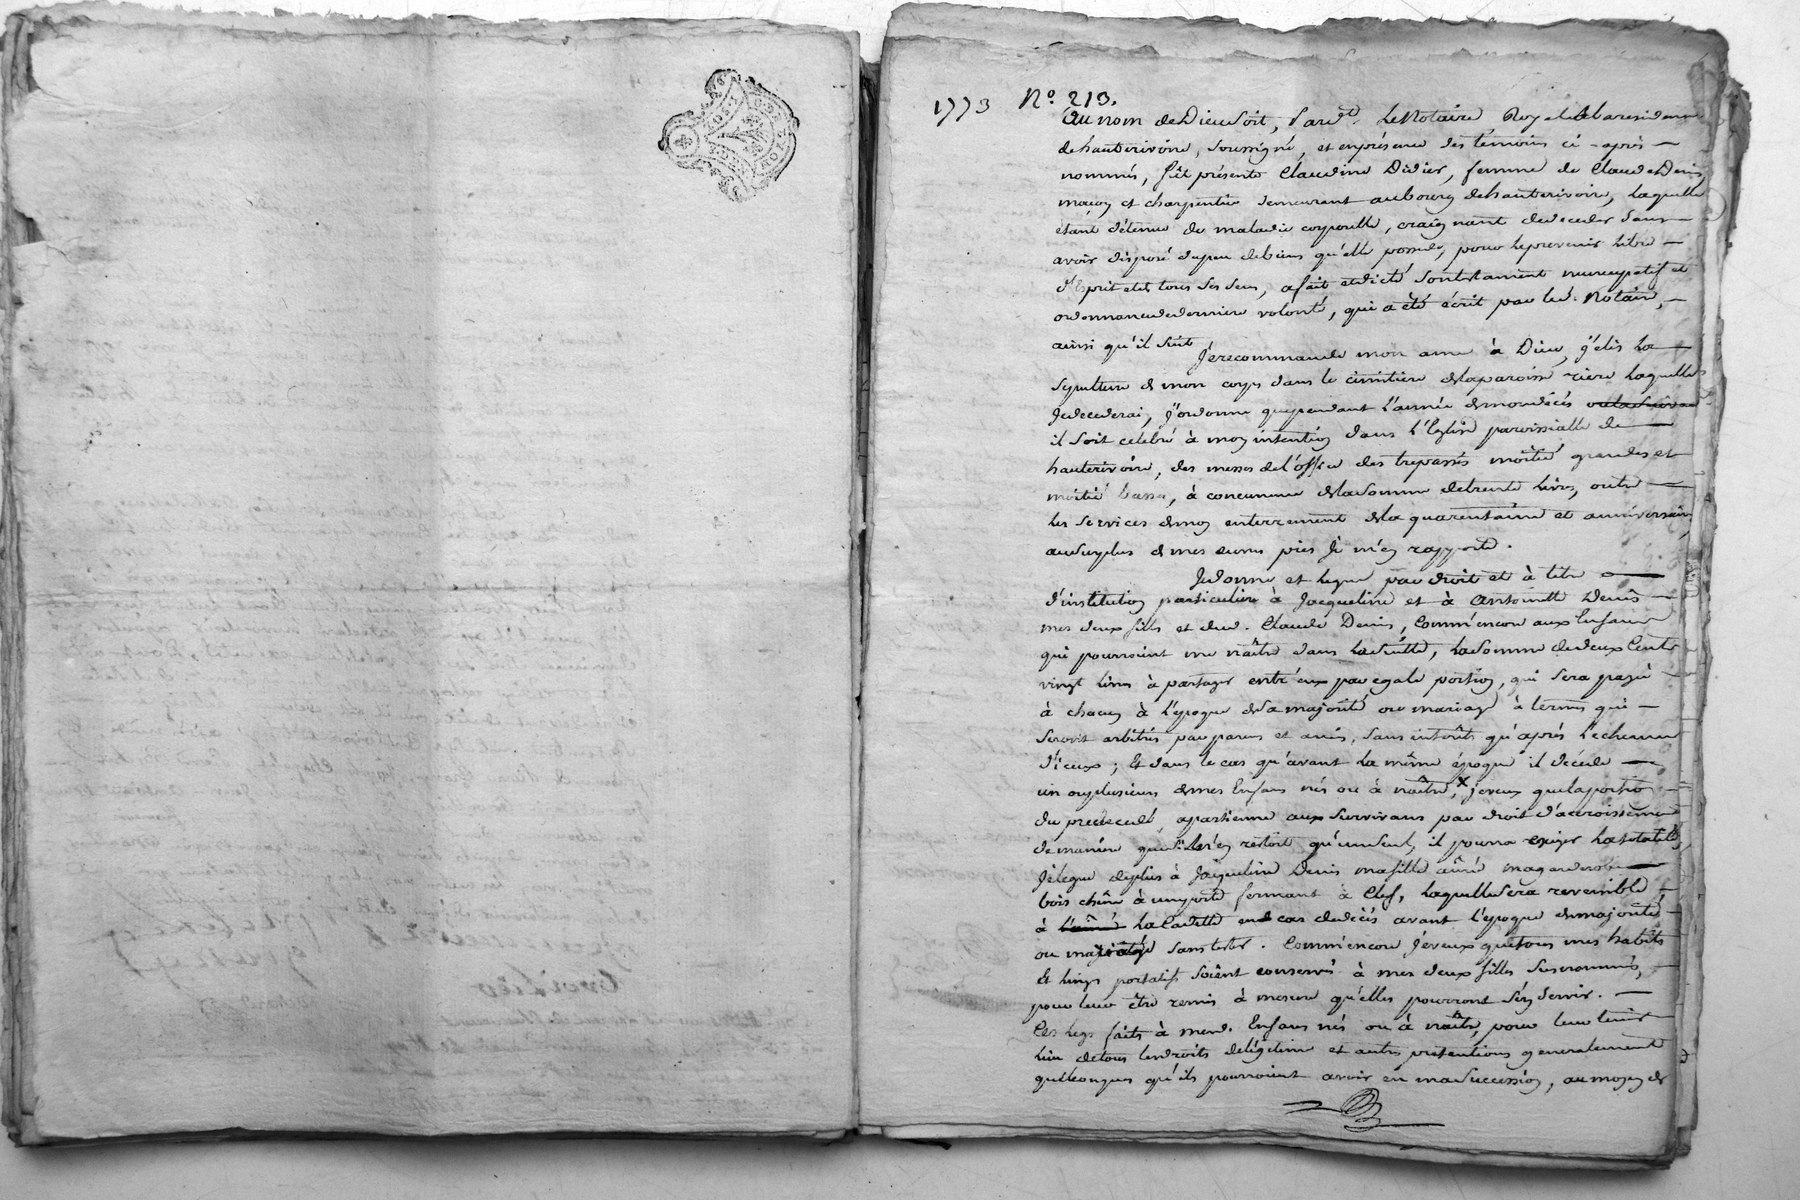 1773 No. 213.
Au nom de Dieu soit, Pard.t Le Notaire Royal de la residence
de hauterivoire, soussigné, et en présence des temoins ci-après
nommés, fût présente Claudine Didier, femme de Claude Denis,
maçon et charpentier demeurant au bourg de hauterivoire, laquelle
étant détenue de maladie corporelle, craignant de deceder sans
avoir disposé du peu de biens qu'elle possede, pour le prevenir libre
d'Esprit et de tous ses sens, a fait et dicté son testament nuncupatif et
ordonnance de derniere volonté, qui a été écrit par led. Notaire,
ainsi qu'il suit Je recommande mon ame à Dieu, j'élis la
sepulture de mon corps dans le cimitiere de la paroisse riere laquelle
je decederai, j'ordonne que pendant l'année de mon décès
il soit célébré à mon intention dans l'Eglise paroissialle de
hauterivoire, des messes de l'office des trepassés moitié grandes et
moitié basses, à concurrence de la somme de trente livres, outre
les services de mon enterrement de la quarentaine et anniversaire,
au surplus de mes œuvres pies Je m'en rapporte.
Je donne et legue par droit et à titre
d'institution particuliere à Jacqueline et à Antoinette Denis
mes deux filles et dud. Claude Denis, comm'encore aux Enfans
qui pourroient me naître dans la suitte, la somme de deux Cents
vingt livres à partager entr'eux par egale portion, qui sera payé
à chacun à l'epoque de sa majorité ou mariage à termes qui
seront arbitrés par parens et amis, sans interêts qu'après l'echeance
d'iceux; Et dans le cas qu'avant la même époque il décéde
un ou plusieurs de mes Enfans nés ou à naître, x je veux que la portion
du predecedé, apartienne aux survivans par droit d'accroissement
de maniere que s'il n'en restoit qu'un seul, il pourra exiger la totalité,
Je legue de plus à Jacqueline Denis ma fille aînée ma garderobe
bois chêne à une porte fermant à Clef, laquelle sera reversible
à la Cadette en cas de décès avant l'epoque de majorité
ou mariage sans tester. Comm'encore Je veux que tous mes habits
Et linges portatifs soient conservés à mes deux filles susnommées,
pour leur être remis à mesure qu'elles pourront s'en servir.
Ces legs faits à mesd. Enfans nés ou à naître, pour leur tenir
lieu de tous les droits de légitime et autres pretentions generalement
quelconques qu'ils pourroient avoir en ma succession, au moyen de